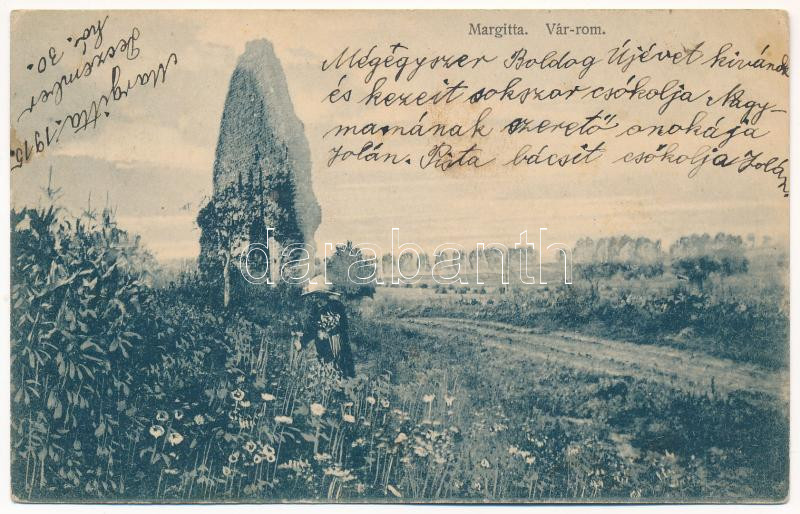 Margitta. Vár-rom.
Margitta. 1915.
Deczember
hó. 30.
Mégégyszer Boldog Újévet kivánok
és kezeit sokszor csókolja Nagy-
mamának szerető onokája
Jolán. Pista bácsit csókolja Jolán.
darabanth